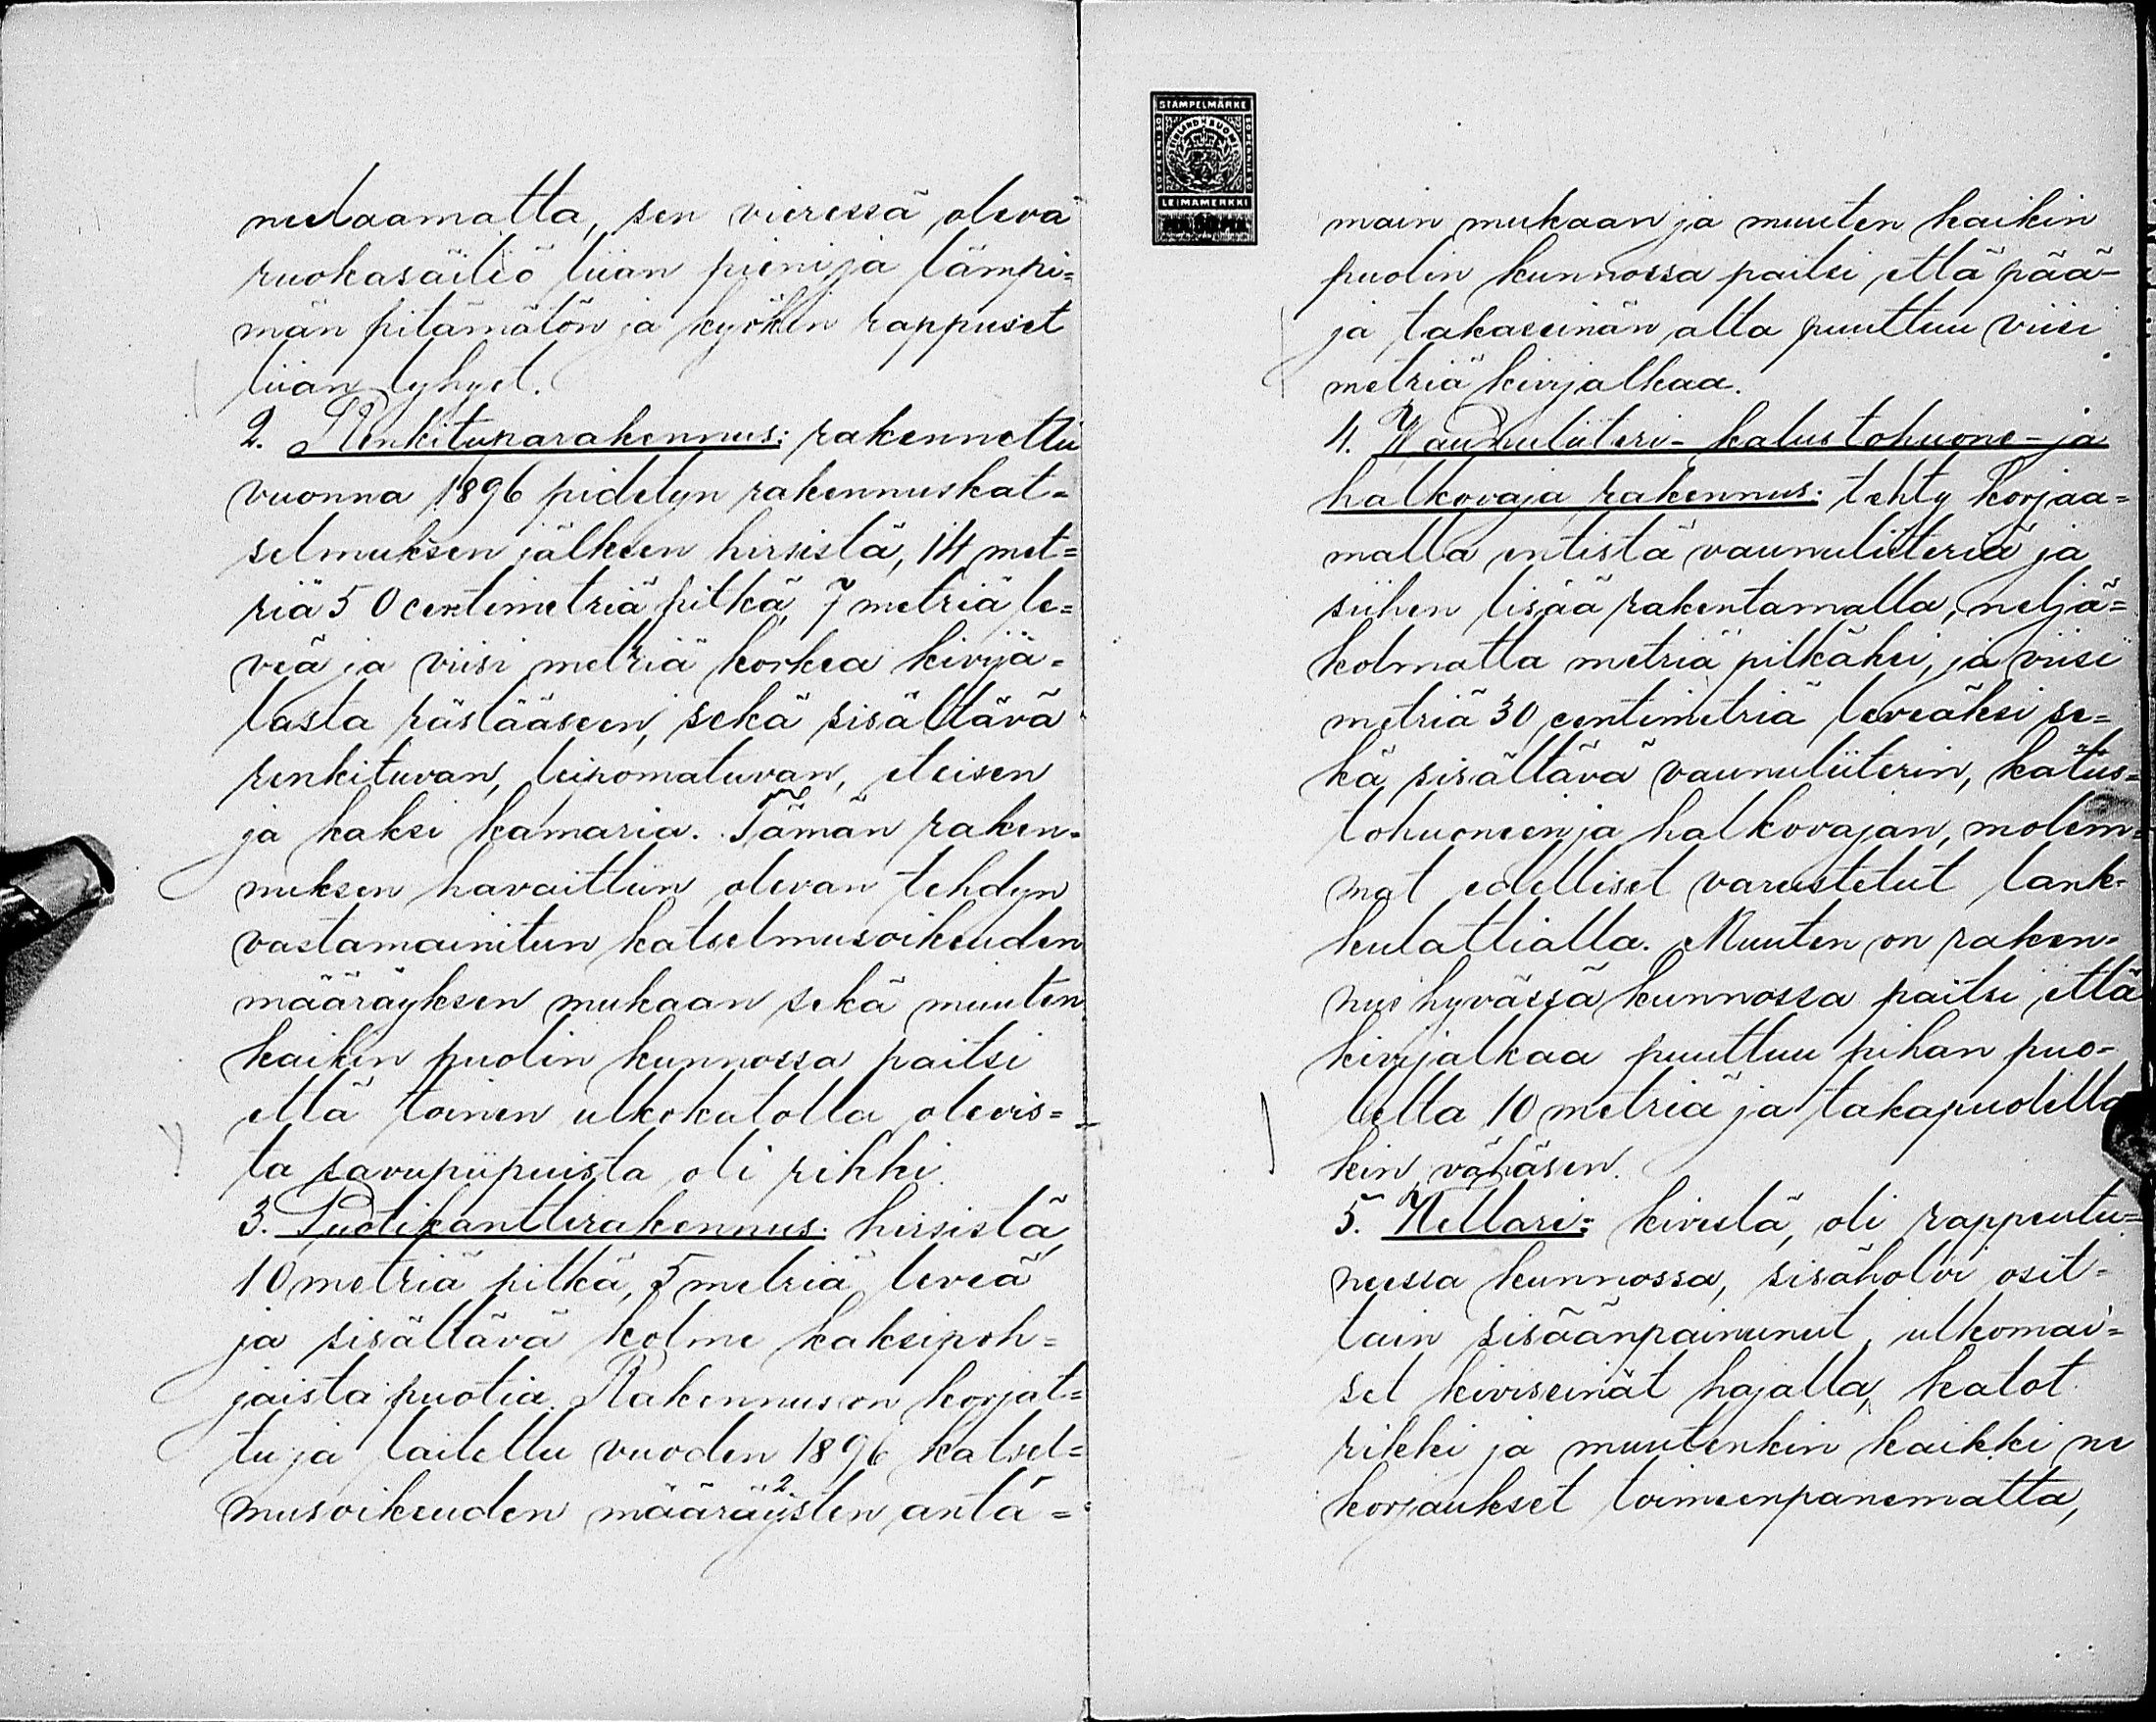 meloamatta, sen vieressä oleva
ruokasäiliö liian pieni ja lämpi=
män pitämätön ja kyökin rappuset
liian lyhyet.
2. Renkituparakennus: rakennettu
vuonna 1896 pidetyn rakennuskat=
selmuksen jälkeen hirsistä, 14 met=
riä 50 centimetriä pitkä, 7 metriä le=
veä ja viisi metriä korkea kivija=
lasta rästääseen, sekä sisältävä
renkituvan, leipomatuvan, eteisen
ja kaksi kamaria. Tämän raken=
nuksen havaittiin olevan tehdyn
vastamainitun katselmusoikeuden
määräyksen mukaan sekä muuten
kaikin puolin kunnossa paitsi
että toinen ulkokatolla olevis=
ta savupiipuista oli rikki.
3. Puotikanttirakennus: hirsistä,
10 metriä pitkä, 5 metriä leveä
ja sisältävä kolme kaksipoh=
jaista puotia. Rakennus on korjat=
tu ja laitettu vuoden 1896 katsel=
musoikeuden määräysten anta=
STÄMPELMÄRKE
FINLAND SUOMI
LEIMAMERKKI
main mukaan ja muuten kaikin
puolin kunnossa paitsi että pää-
ja takaseinän alta puuttuu viisi
metriä kivijalkaa.
4. Waunuliiteri- kalustohuone- ja
halkovaja rakennus: tehty korjaa=
malla entistä vaunuliiteriä ja
siihen lisää rakentamalla, neljä=
kolmatta metriä pitkäksi, ja viisi
metriä 30 centimetriä leveäksi se=
kä sisältävä vaunuliiterin, kalus=
tohuoneen ja halkovajan, molem=
mat edelliset varustetut lank=
kulattialla. Muuten on raken=
nus hyvässä kunnossa paitsi että
kivijalkaa puuttuu pihan puo=
lella 10 metriä ja takapuolella
kin vähäsen.
5. Kellari: kivestä, oli rappeutu=
neessa kunnossa, sisäholvi osit=
tain sisäänpainunut, ulkomai=
set kiviseinät hajalla, katot
rikki ja muutenkin kaikki ne
korjaukset toimeenpanematta,